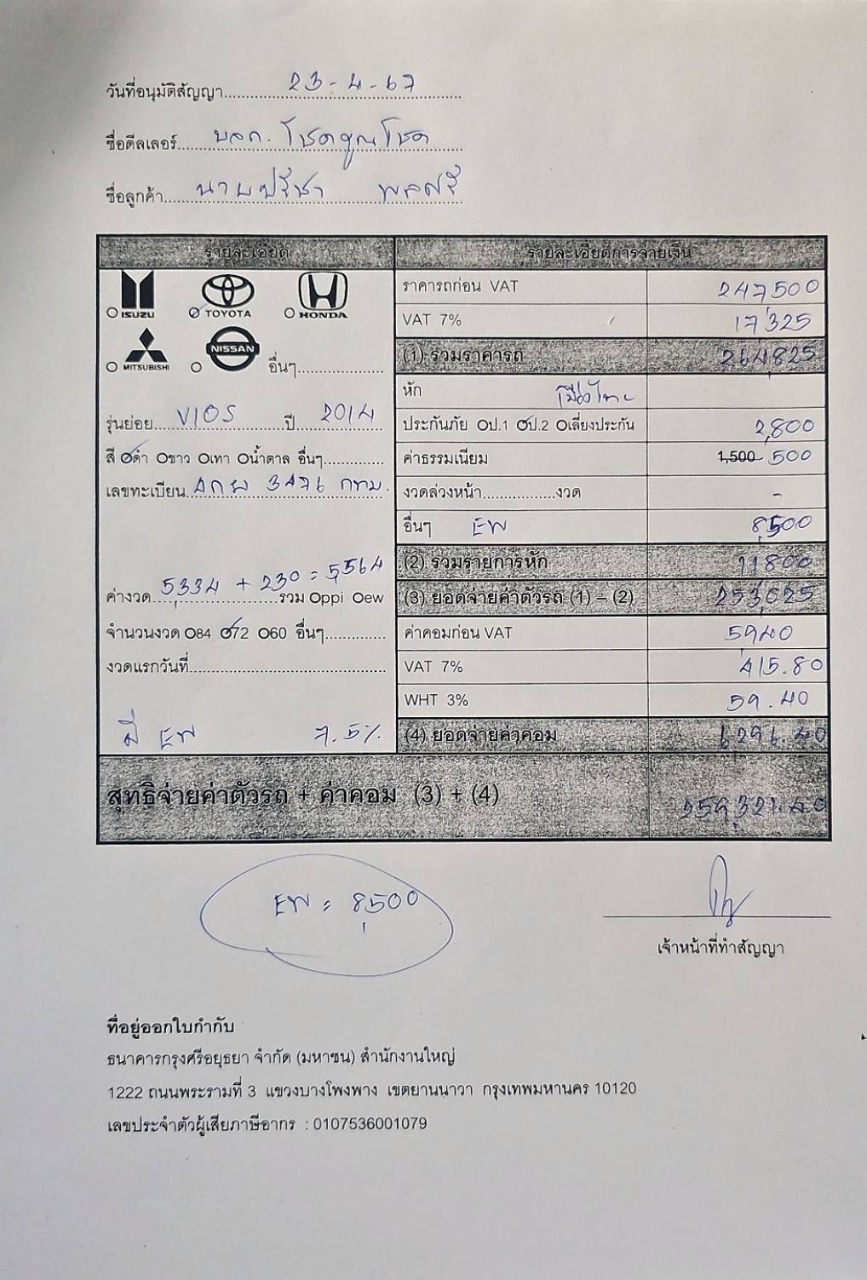 วันที่อนุมัติสัญญา.......23-4-67
ชื่อดีลเลอร์.......บจก. โชคคูณโชค
ชื่อลูกค้า.......นายปรีชา พลศรี
รายละเอียด
ISUZU TOYOTA HONDA
MITSUBISHI NISSAN อื่นๆ.......
รุ่นย่อย....VIOS ปี 2014
สี ดำ ขาว เทา น้ำตาล อื่นๆ.......
เลขทะเบียน 3476 กทม.
ค่างวด 5334 + 230 = 5,564 รวม ppi ew
จำนวนงวด 84 72 60 อื่นๆ.......
งวดแรกวันที่.......
มี EW 7.5%
รายละเอียดการจ่ายเงิน
ราคารถก่อน VAT 247,500
VAT 7% 17,325
(1) รวมราคารถ 264,825
หัก เมืองไทย
ประกันภัย ป.1 ป.2 เลี่ยงประกัน 2,800
ค่าธรรมเนียม 1,500 500
งวดล่วงหน้า.......งวด -
อื่นๆ EW 8,500
(2) รวมรายการหัก 11,800
(3) ยอดจ่ายค่าตัวรถ (1) – (2) 253,025
ค่าคอมก่อน VAT 5940
VAT 7% 415.80
WHT 3% 59.40
(4) ยอดจ่ายค่าคอม 6296.40
สุทธิจ่ายค่าตัวรถ + ค่าคอม (3) + (4) 259,321.40
EW = 8,500
เจ้าหน้าที่ทำสัญญา
ที่อยู่ออกใบกำกับ
ธนาคารกรุงศรีอยุธยา จำกัด (มหาชน) สำนักงานใหญ่
1222 ถนนพระรามที่ 3 แขวงบางโพงพาง เขตยานนาวา กรุงเทพมหานคร 10120
เลขประจำตัวผู้เสียภาษีอากร : 0107536001079